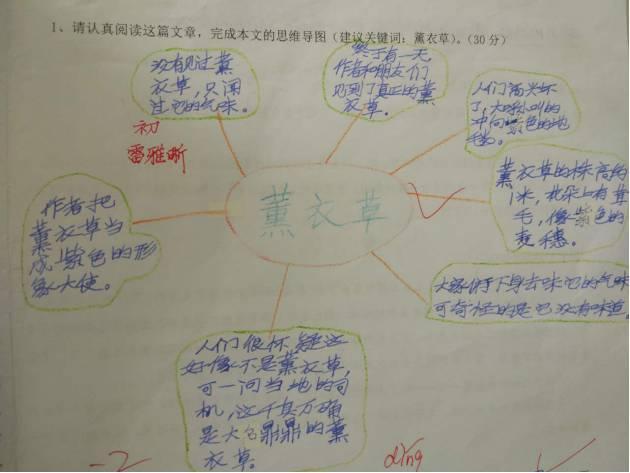 1、请认真阅读这篇文章，完成本文的思维导图（建议关键词：薰衣草）。（30分）
没有见过薰
衣草，只闻
过它的气味。
终于有一天
作者和朋友们
见到了真正的薰
衣草。
人们高兴坏
了，大呼小叫的
冲向紫色的地
毯。
初
雷雅晰
薰衣草的株高约
1米，花朵上有茸
毛，像紫色的
麦穗。
薰衣草
作者把
薰衣草当
成紫色的形
象大使。
大家俯下身去味它的气味
可奇怪的是它没有味道
人们很怀疑这
好像不是薰衣草，
可一问当地的司
机，这千真万确
是大名鼎鼎的薰
衣草。
-2
díng